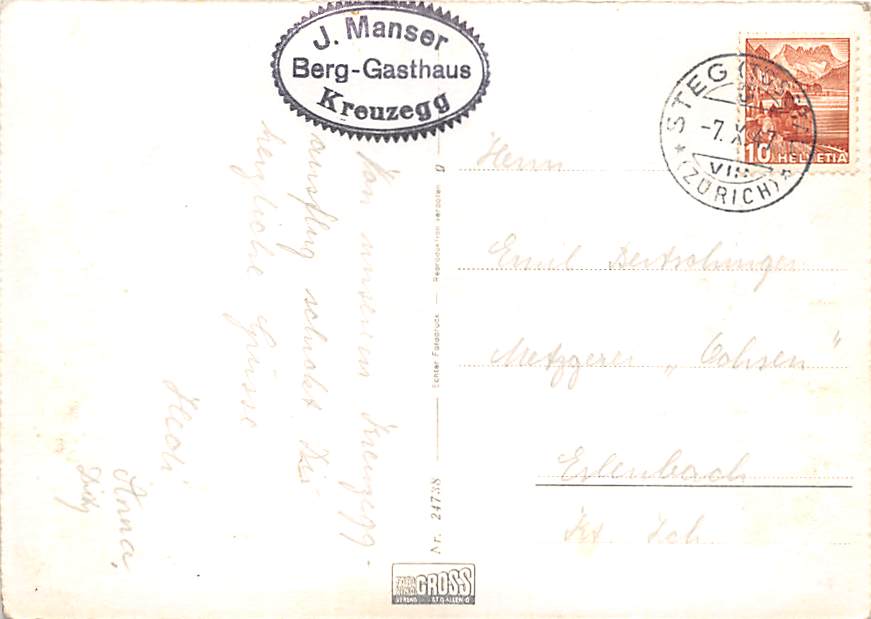 J. Manser
Berg-Gasthaus
Kreuzegg
STEG (TÖSSTAL)
-7. X. 47
VIII
(ZÜRICH)
10 HELVETIA
Von unserem Kreuzegg-
ausflug schickt Dir
herzliche Grüsse
Hedi
Anna,
Herrn
Emil Bertschinger
Metzgerei „Ochsen"
Erlenbach
Kt. Zch.
Nr. 24738
Echter Fotodruck
Reproduktion verboten
g
GROSS
ST. GALLEN